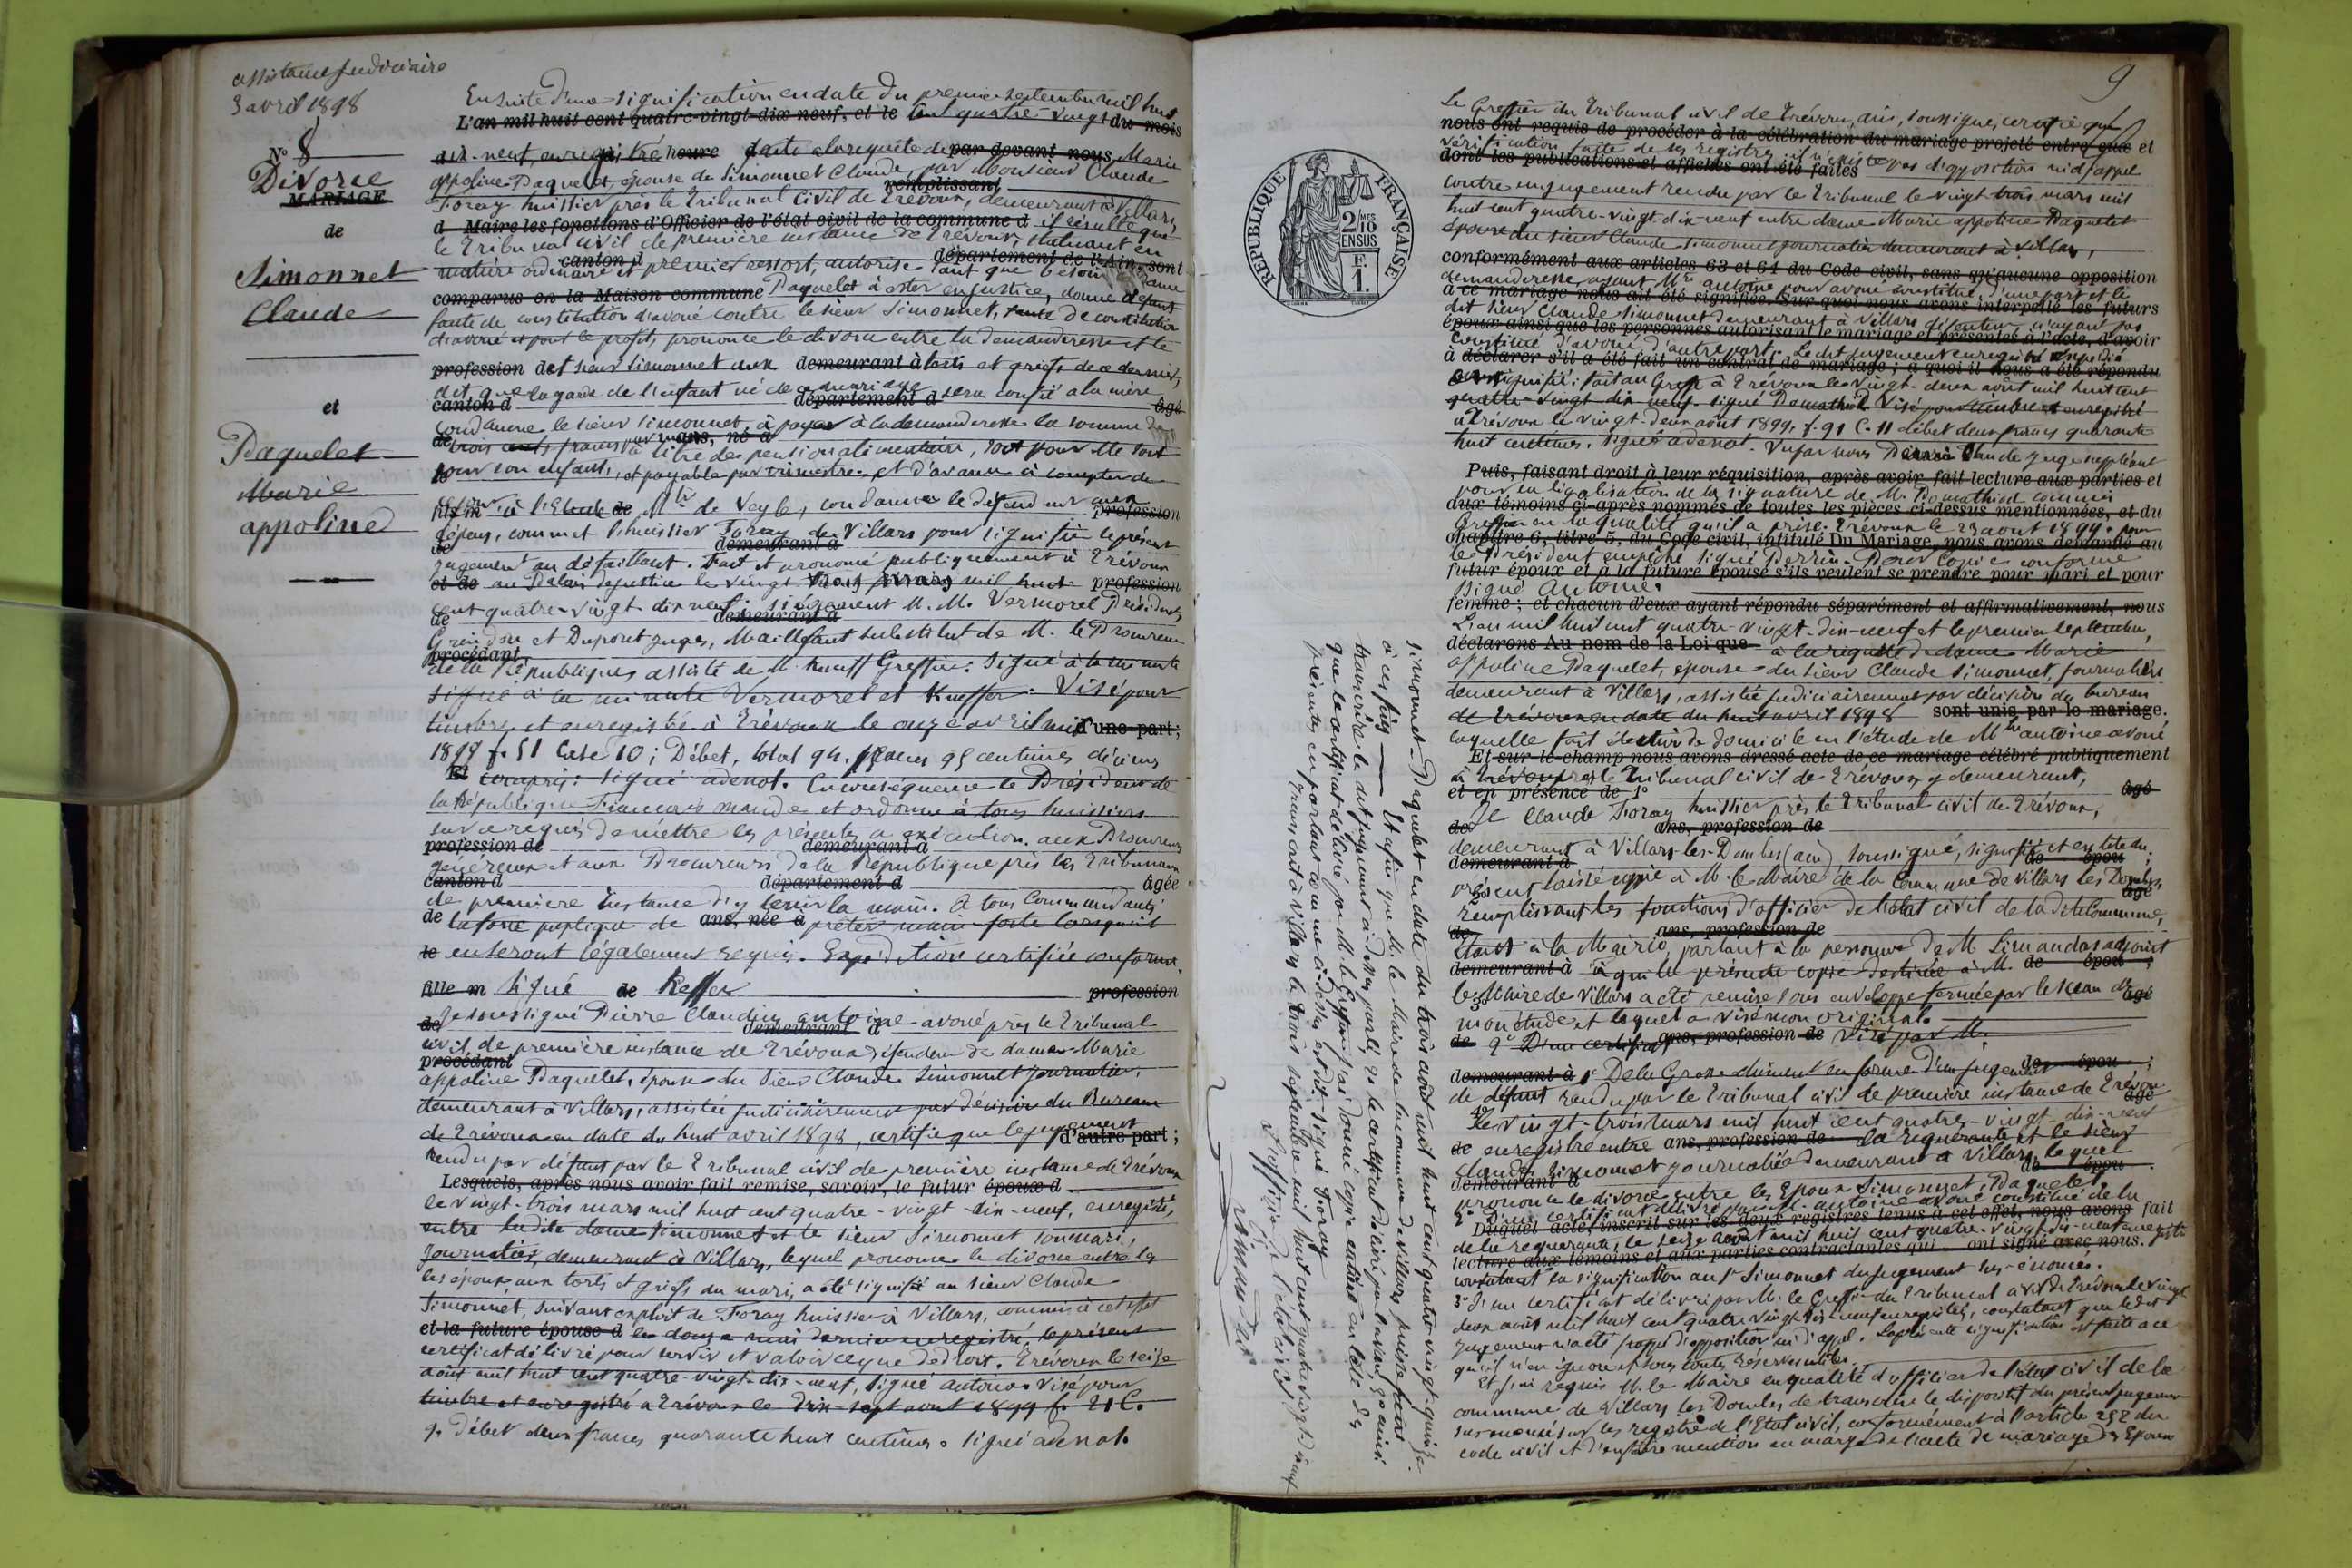 assistance judiciaire
3 avril 1898
N° 8
Divorce
MARIAGE
de
Simonnet
Claude
et
Paquelet
Marie
appoline
Ensuite d'une signification en date du premier septembre mil huit
L'an mil huit cent quatre-vingt-dix neuf, et le cent quatre vingt du mois
dix-neuf, enregistré heure faite a la requête de par devant nous, Marie
appoline Paquelet, épouse de Simonnet Claude, par Monsieur Claude
remplissant
Foray huissier près le Tribunal Civil de Trévoux, demeurant à Villars,
d Maire les fonctions d'Officier de l'état civil de la commune d il résulte que
le Tribunal civil de première instance de Trévoux, statuant en
canton d département de l'Ain, sont
matière ordinaire et premier ressort, autorise tant que besoin dame
comparus en la Maison commune Paquelet à ester en justice, donne défaut
faute de constitution d'avoué contre le sieur Simonnet, faute de constitution
d'avoué et pour le profit, prononce le divorce entre la demanderesse et le
profession det sieur Simonnet aux demeurant à torts et griefs de ce dernier,
dit que la garde de l'enfant né de ce mariage sera confié a la mère
canton d département d âgé
condamne le sieur Simonnet, à payer à la demanderesse la somme de
de trois cents francs par ans, né à
à titre de pension alimentaire, soit pour elle soit
pour son enfant, et payable par trimestre et d'avance à compter de
fils m à l'Etude de Mtre de Veyle, condamne le défendeur aux profession
dépens, commet l'huissier Foray de Villars pour signifier le présent
de demeurant à
jugement au défaillant. Fait et prononcé publiquement à Trévoux
et de au Palais de justice le vingt trois mars mil huit profession
cent quatre-vingt-dix neuf: siégeaient M.M. Vermorel Président,
de demeurant à
et Dupont juges, Maillfaut substitut de M. le Procureur
procédant
de la République, assisté de M. Kueff Greffier: Signé à la minute
signé à la minute Vermorel et Kueffer. Visé pour
timbre et enregistré à Trévoux le onze avril mil d'une part;
1899 f. 51 Case 10; Débet, total 94 francs 95 centimes décimes
Et compris: signé adenot. En conséquence le Président de
la République Française mande et ordonne à tous huissiers
sur ce requis de mettre les présentes a exécution. aux Procureurs
profession de demeurant à
généraux et aux Procureurs de la République près les Tribunaux
canton d département d âgée
de première instance d'y tenir la main. A tous Commandants
de la force publique de ans, née à prêter main forte lorsqu'ils
le en seront légalement requis. Expédition certifiée conforme.
fille m signé de Keffer profession
Je soussigné Pierre Claudius antoine avoué près le Tribunal
de demeurant à
civil de première instance de Trévoux défendeur de dame Marie
procédant
appoline Paquelet, épouse du Sieur Claude Simonnet journalier,
demeurant à Villars, assistée judiciairement par décision du Bureau
de Trévoux en date du huit avril 1898, certifie que le jugement d'autre part;
Rendu par défaut par le Tribunal civil de première instance de Trévoux
Lesquels, après nous avoir fait remise, savoir, le futur époux d
le vingt-trois mars mil huit cent quatre-vingt-dix-neuf, enregistré,
entre ladite dame Simonnet et le sieur Simonnet son mari,
journalier, demeurant à Villars, lequel prononce le divorce entre les
les époux aux torts et griefs du mari, a été signifié au sieur Claude
Simonnet, suivant exploit de Foray huissier à Villars, commis à cet effet
et la future épouse d le douze mai dernier enregistré, le présent
certificat délivré pour servir et valoir ce que de droit. Trévoux le seize
août mil huit cent quatre-vingt-dix-neuf, signé antoine Visé pour
timbre et enregistré a Trévoux le dix-sept août 1899 f. 21 C.
9. Débet deux francs quarante huit centimes. signé adenot.
9
REPUBLIQUE FRANÇAISE
2/10 MES
EN SUS
F.
1.
Le Greffier du Tribunal civil de Trévoux, ain, soussigné, certifie que
nous ont requis de procéder à la célébration du mariage projeté entre eux et
vérification faite de ses registres il n'existe pas d'opposition ni d'appel
dont les publications et affiches ont été faites
contre un jugement rendu par le Tribunal le vingt-trois mars mil
huit cent quatre-vingt-dix-neuf entre dame Marie appoline Paquelet
épouse du sieur Claude Simonnet journalier demeurant à Villars,
conformément aux articles 63 et 64 du Code civil, sans qu'aucune opposition
demanderesse ayant Mtre antoine pour avoué constitué, d'une part et le
à ce mariage nous ait été signifiée. Sur quoi nous avons interpellé les futurs
dit sieur Claude Simonnet demeurant à Villars défendeur n'ayant pas
époux ainsi que les personnes autorisant le mariage et présentes à l'acte, d'avoir
constitué d'avoué d'autre part. Le dit jugement enregistré expédié
à déclarer s'il a été fait un contrat de mariage; à quoi il nous a été répondu
et signifié: fait au Greffe à Trévoux le vingt-deux août mil huit cent
quatre-vingt-dix-neuf signé Domathiod Visé pour timbre et enregistré
à Trévoux le vingt-deux août 1899, f. 91 C. 11 débet deux francs quarante
huit centimes. signé adenot. Vu par nous Perrin Claude juge suppléant
Puis, faisant droit à leur réquisition, après avoir fait lecture aux parties et
pour en légalisation de la signature de M. Domathiod commis
aux témoins ci-après nommés de toutes les pièces ci-dessus mentionnées, et du
Greffier en la qualité qu'il a prise. Trévoux le 23 août 1899. pour
chapitre 6, titre 5, du Code civil, intitulé Du Mariage, nous avons demandé au
le Président empêché signé Perrin. Pour Copie conforme
futur époux et à la future épouse s'ils veulent se prendre pour mari et pour
signé Antoine.
femme; et chacun d'eux ayant répondu séparément et affirmativement, nous
L'an mil huit cent quatre-vingt-dix-neuf et le premier septembre,
déclarons Au nom de la Loi que à la requête de dame Marie
appoline Paquelet, épouse du sieur Claude Simonnet, journalière
demeurant à Villars, assistée judiciairement par décision du bureau
de Trévoux en date du huit avril 1898 sont unis par le mariage.
laquelle fait élection de domicile en l'étude de Mtre antoine avoué
Et sur-le-champ nous avons dressé acte de ce mariage célébré publiquement
à Trévoux près le Tribunal civil de Trévoux y demeurant,
et en présence de 1° âgé
Je Claude Foray huissier près le Tribunal civil de Trévoux,
de ans, profession de
demeurant à Villars-les-Dombes (ain), soussigné, signifié et en tête du
demeurant à de épou ;
présent laissé copie à M. le Maire de la Commune de Villars les Dombes,
2° âgé
remplissant les fonctions d'officier de l'état civil de la dite Commune,
de ans, profession de
étant à la Mairie, parlant à la personne de M. Simandas adjoint
demeurant à à qui la présente copie destinée à M. de épou ;
le Maire de Villars a été remise sous enveloppe fermée par le sceau de
3° âgé
mon étude et lequel a visé mon original.
de 2° D'un certificat ans, profession de visé par M.
demeurant à 1° De la Grosse dûment en forme d'un jugement de épou ;
de défaut rendu par le Tribunal civil de première instance de Trévoux
4° âgé
le vingt-trois mars mil huit cent quatre-vingt-dix-neuf
de enregistré entre ans, profession de la requérante et le sieur
Claude Simonnet journalier demeurant à Villars, lequel
demeurant à de épou .
prononce le divorce entre les Epoux Simonnet, Paquelet.
2° D'un certificat délivré par M. antoine avoué constitué de la
Duquel acte, inscrit sur les deux registres tenus à cet effet, nous avons fait
de la requérante, le seize août mil huit cent quatre-vingt-dix-neuf enregistré
lecture aux témoins et aux parties contractantes qui ont signé avec nous.
constatant la signification au Sr Simonnet du jugement sus-énoncé.
3° D'un certificat délivré par M. le Greffier du Tribunal civil de Trévoux le vingt
deux août mil huit cent quatre vingt dix neuf enregistré, constatant que le dit
jugement n'a été frappé d'opposition ni d'appel. La présente signification est faite a ce
qu'il n'en ignore et sous toutes réserves utiles.
Et j'ai requis M. le Maire en qualité d'officier de l'état civil de la
commune de Villars les Dombes de transcrire le dispositif du présent jugement
susénoncé sur les registres de l'Etat civil, conformément à l'article 252 du
code civil et d'en faire mention en marge de l'acte de mariage des Epoux
Simonnet-Paquelet en date du trois août mil huit cent quatre-vingt-quinze.
à ces fins Et afin que M. le Maire de la commune de Villars puisse faire
transcrire le dit jugement ci dessus parlé,
que le certificat délivré par M. le Greffier, j'ai donné copie entière en tête des
présentes en parlant comme ci-dessus est dit. Signé Foray
Transcrit à Villars le trois septembre mil huit cent quatre vingt dix neuf
L'officier de l'état civil
Simandas